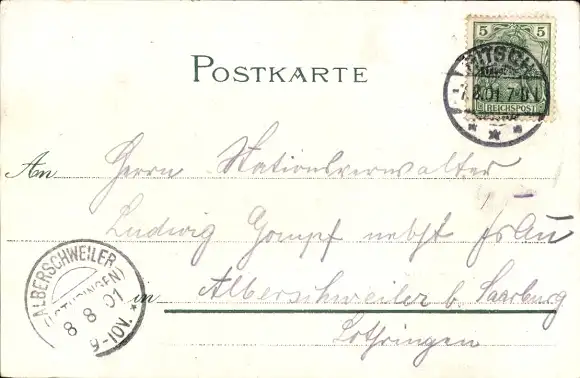 5 5
REICHSPOST
MITSCH
7.8.01 7-8 N
POSTKARTE
An Herrn Stationsverwalter
Ludwig Gompf nebst Frau
in Alberschweiler b. Saarburg
Lothringen
ALBERSCHWEILER
(LOTHRINGEN)
8 8 01
9-10V.